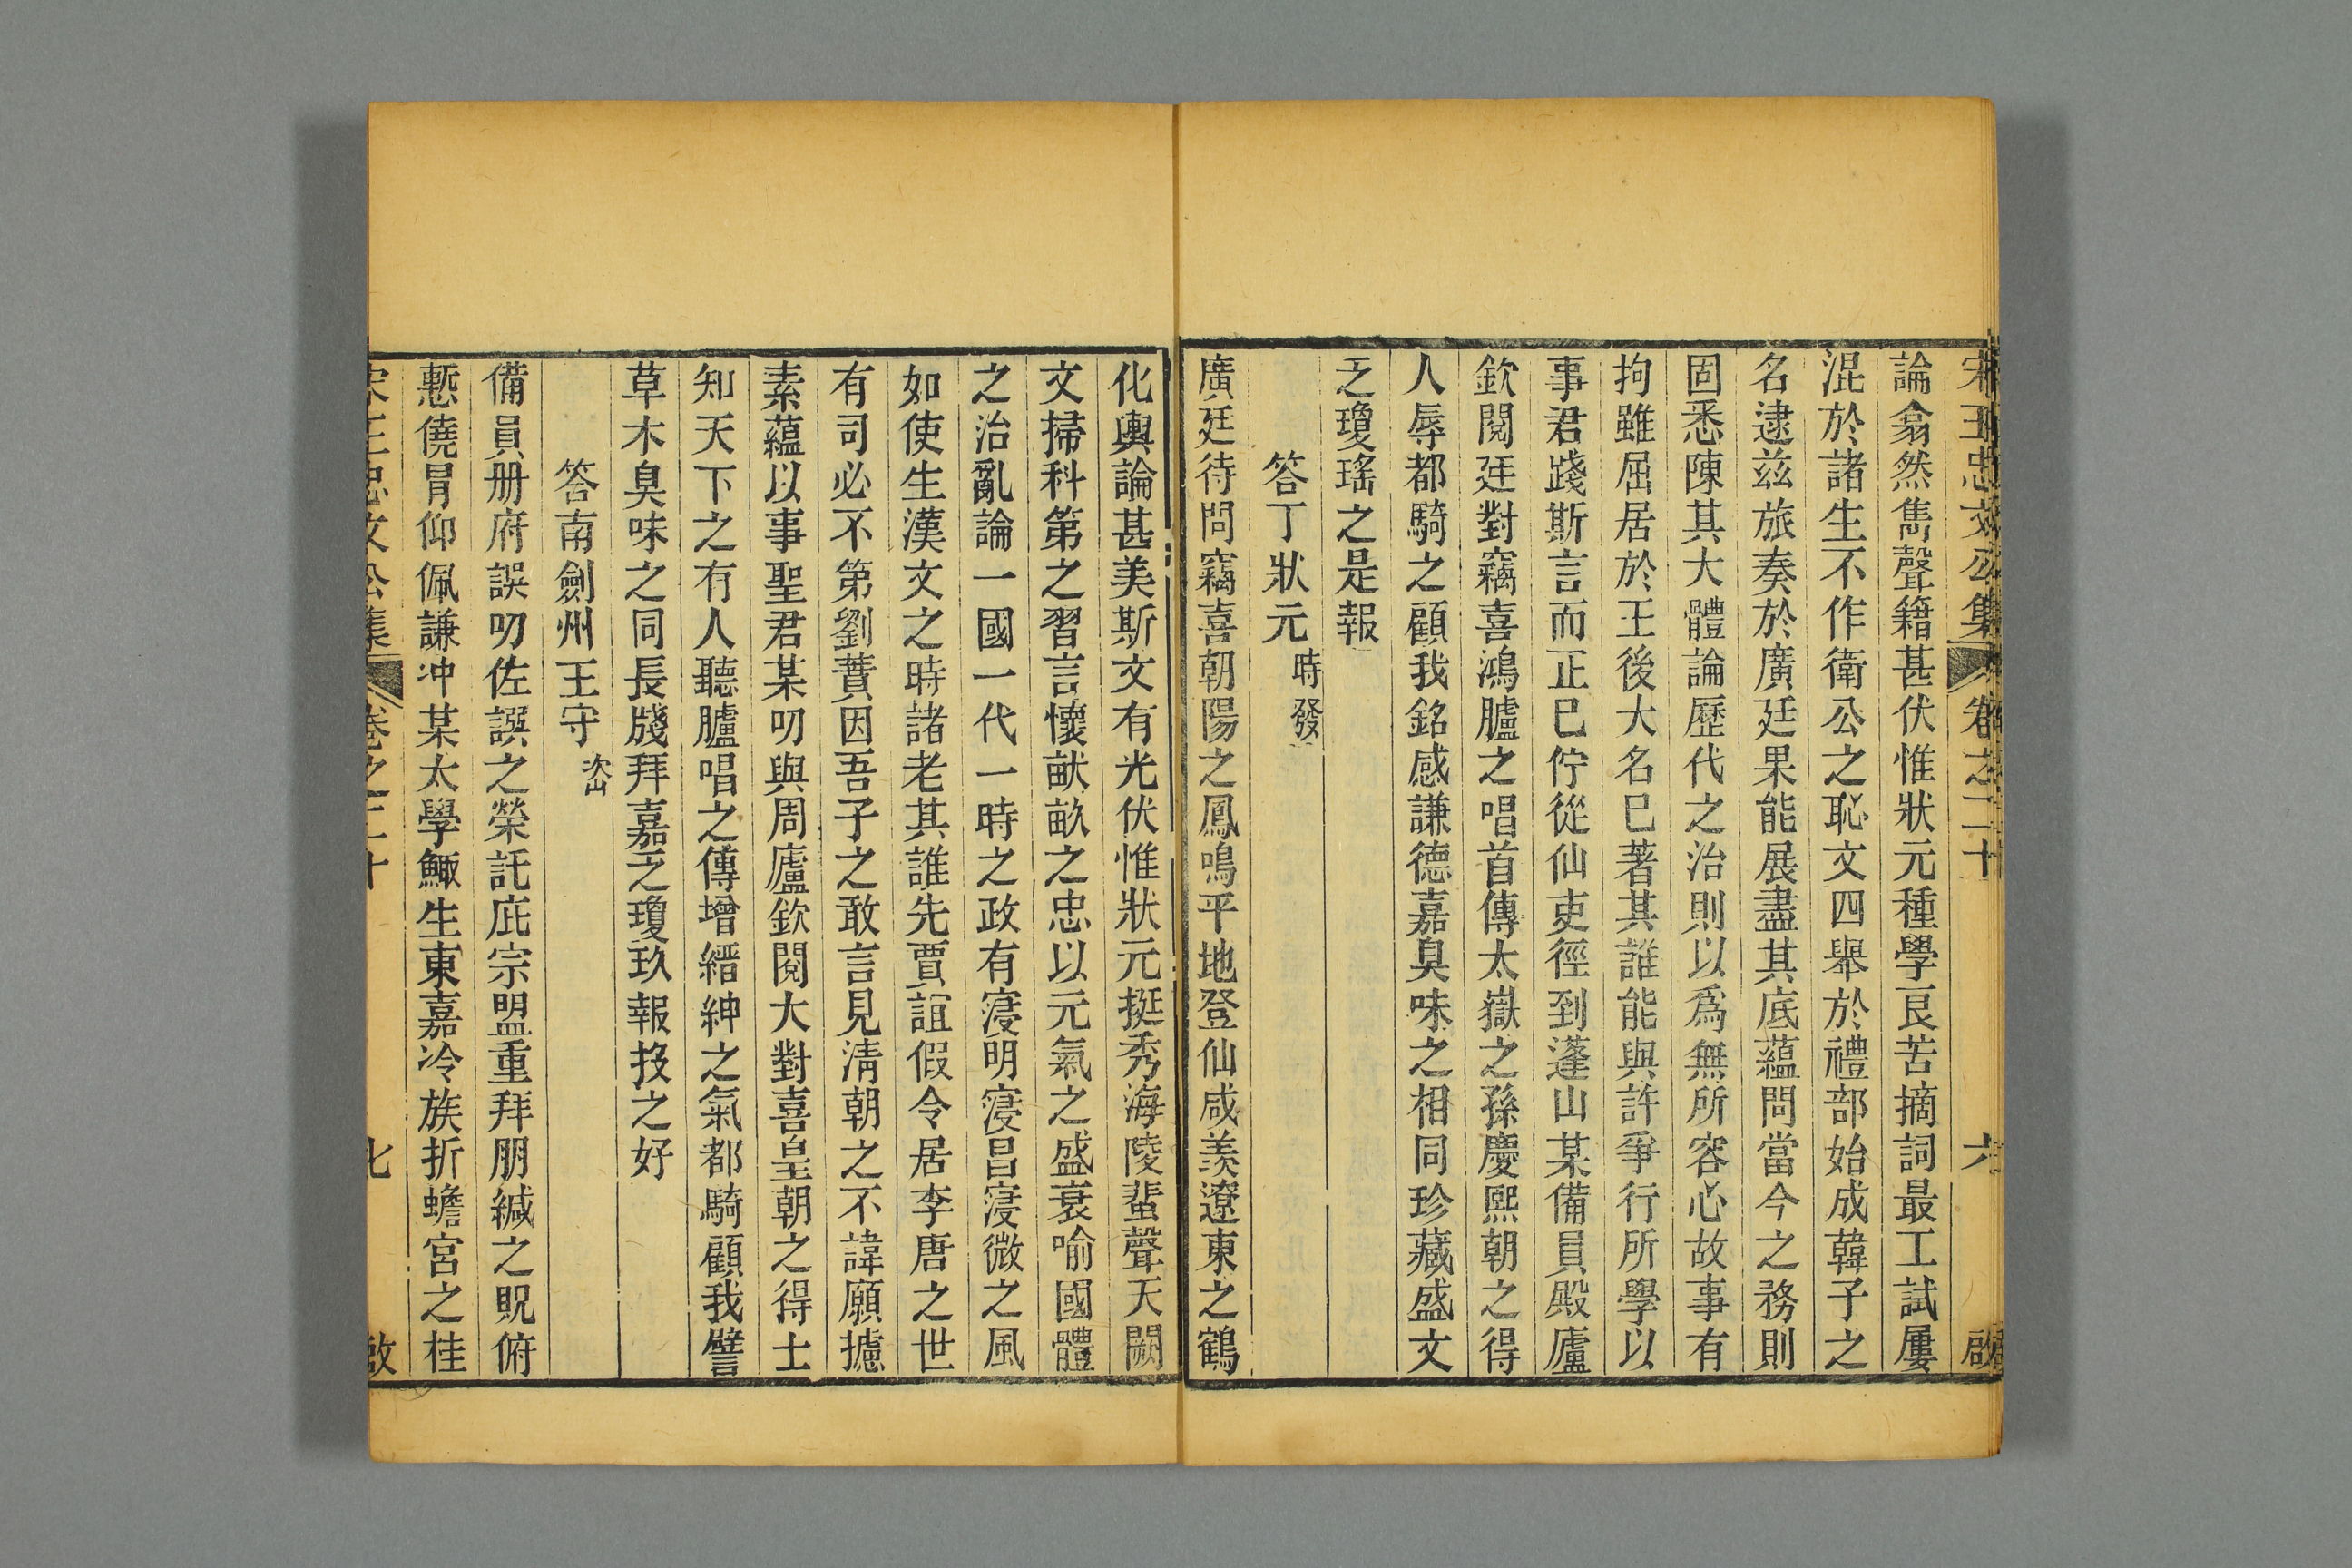 宋王忠文公集 卷之二十 六 啟
論翕然雋聲籍甚伏惟狀元種學良苦摛詞最工試屢
混於諸生不作衛公之恥文四舉於禮部始成韓子之
名逮茲旅奏於廣廷果能展盡其底蘊問當今之務則
固悉陳其大體論歷代之治則以爲無所容心故事有
拘雖屈居於王後大名已著其誰能與許爭行所學以
事君踐斯言而正已佇從仙吏徑到蓬山某備員殿廬
欽閱廷對竊喜鴻臚之唱首傳太嶽之孫慶熙朝之得
人辱都騎之顧我銘感謙德嘉臭味之相同珍藏盛文
乏瓊瑤之是報
答丁狀元時發
廣廷待問竊喜朝陽之鳳鳴平地登仙咸羨遼東之鶴
化輿論甚美斯文有光伏惟狀元挺秀海陵蜚聲天闕
文掃科第之習言懷畎畝之忠以元氣之盛衰喻國體
之治亂論一國一代一時之政有寖明寖昌寖微之風
如使生漢文之時諸老其誰先賈誼假令居李唐之世
有司必不第劉蕡因吾子之敢言見清朝之不諱願攄
素蘊以事聖君某叨與周廬欽閱大對喜皇朝之得士
知天下之有人聽臚唱之傳增縉紳之氣都騎顧我譬
草木臭味之同長牋拜嘉乏瓊玖報投之好
答南劍州王守
備員册府誤叨佐譔之榮託庇宗盟重拜朋緘之貺俯
慙僥冐仰佩謙冲某太學鯫生東嘉冷族折蟾宮之桂
宋王忠文公集 卷之二十 七 啟